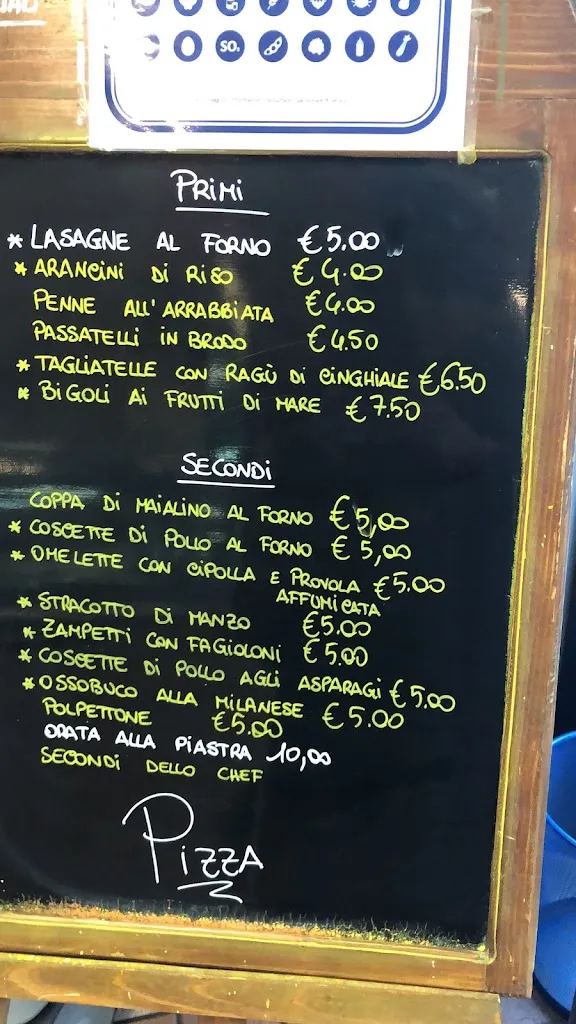 SO₂
PRIMI
* LASAGNE AL FORNO €5.00
* ARANCINI DI RISO €4.00
PENNE ALL'ARRABBIATA €4.00
PASSATELLI IN BRODO €4.50
* TAGLIATELLE CON RAGÙ DI CINGHIALE €6.50
* BIGOLI AI FRUTTI DI MARE €7.50
SECONDI
COPPA DI MAIALINO AL FORNO €5,00
* COSCETTE DI POLLO AL FORNO €5,00
* OMELETTE CON CIPOLLA E PROVOLA €5.00
AFFUMICATA
* STRACOTTO DI MANZO €5.00
* ZAMPETTI CON FAGIOLONI €5.00
* COSCETTE DI POLLO AGLI ASPARAGI €5.00
* OSSOBUCO ALLA MILANESE €5.00
POLPETTONE €5.00
ORATA ALLA PIASTRA 10,00
SECONDI DELLO CHEF
PIZZA